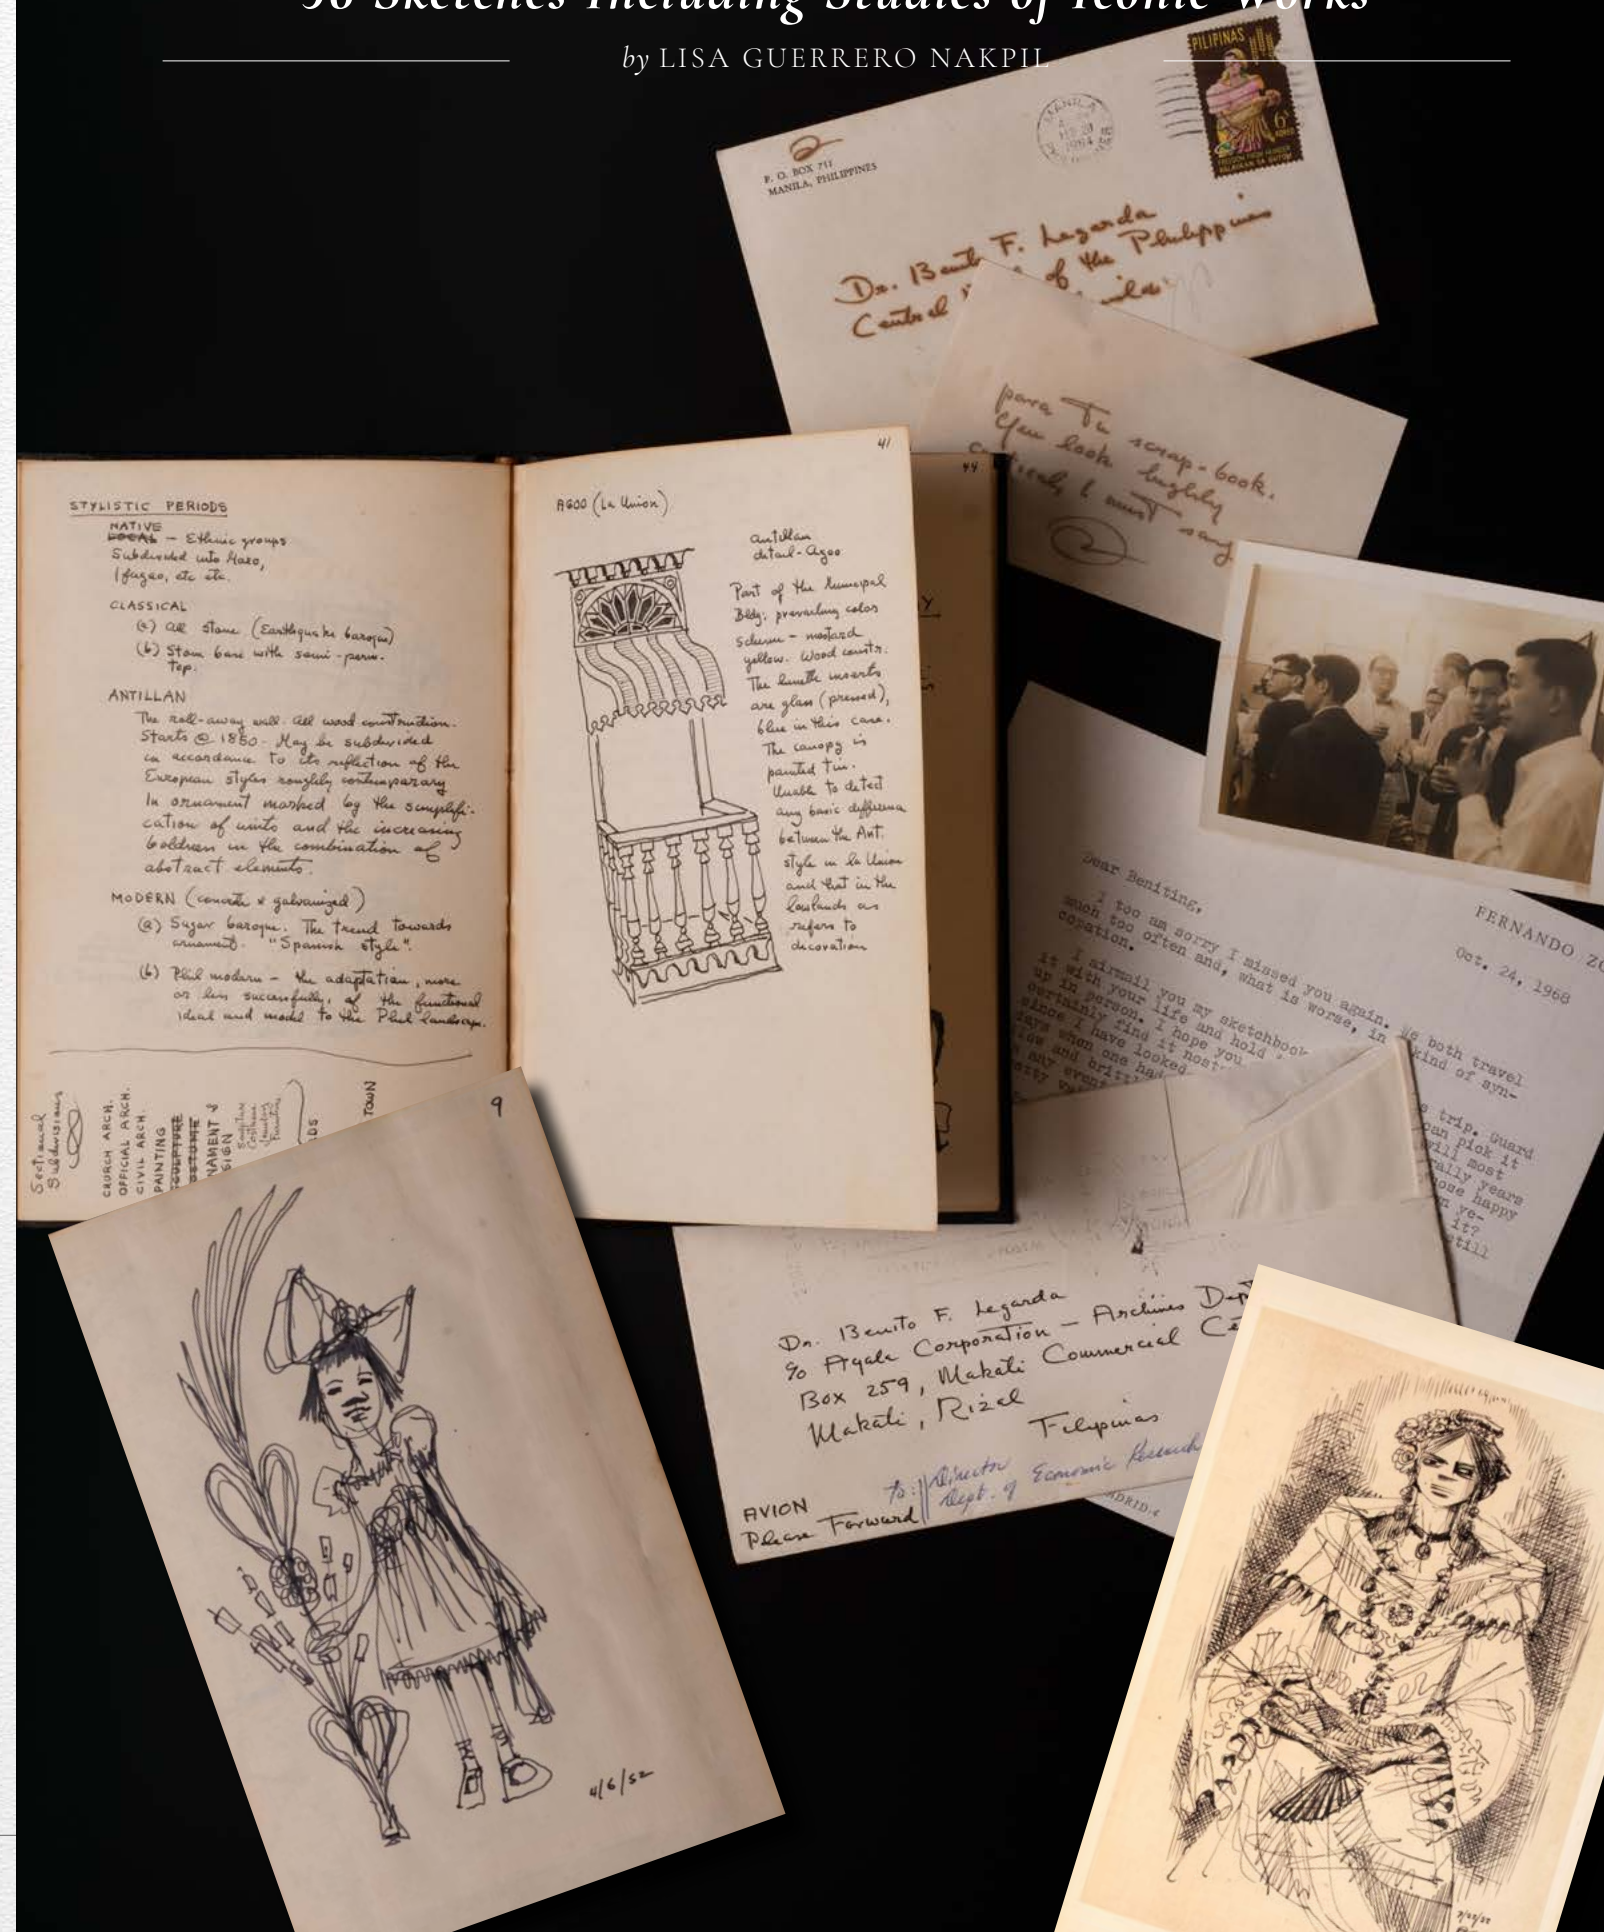 by LISA GUERRERO NAKPIL
PILIPINAS
6s
FREEDOM FROM HUNGER
MANILA
1964
P. O. BOX 711
MANILA, PHILIPPINES
Dr. Benito F. Legarda
Central of the Philippines
para Tu scrap-book.
You look highly
I must say
41
44
STYLISTIC PERIODS
NATIVE
LOCAL – Ethnic groups
Subdivided into Moro,
Ifugao, etc etc.
CLASSICAL
(a) All stone (Earthquake baroque)
(b) Stone base with semi-perm.
top.
ANTILLAN
The roll-away wall. All wood construction.
Starts @ 1850. May be subdivided
in accordance to its reflection of the
European styles roughly contemporary
In ornament marked by the simplifi-
cation of units and the increasing
boldness in the combination of
abstract elements.
MODERN (concrete & galvanized)
(a) Sugar baroque. The trend towards
ornament. "Spanish style".
(b) Phil modern – the adaptation, more
or less successfully, of the functional
ideal and model to the Phil landscape.
Sectional
Subdivisions
CHURCH ARCH.
OFFICIAL ARCH.
CIVIL ARCH.
PAINTING
SCULPTURE
COSTUME
NAMENT &
SIGN
Sculpture
Costume
Jewelry
Furniture
DS
TOWN
AGOO (La Union)
antillan
detail - Agoo
Part of the Municipal
Bldg; prevailing color
scheme – mustard
yellow. Wood constr.
The lunette inserts
are glass (pressed),
blue in this case.
The canopy is
painted tin.
Unable to detect
any basic difference
between the Ant.
style in la Union
and that in the
lowlands as
refers to
decoration
FERNANDO ZO
Oct. 24, 1968
Dear Beniting,
I too am sorry I missed you again. We both travel
much too often and, what is worse, in kind of syn-
copation.
I airmail you my sketchbook s trip. Guard
it with your life and hold can pick it
up in person. I hope you will most
certainly find it nost rally years
since I have looked hose happy
days when one had n ye-
and britt it?
any event still
Dr. Benito F. Legarda
c/o Ayala Corporation – Archives Dept
Box 259, Makati Commercial Ce
Makati, Rizal
Filipinas
to: Director
Dept. of Economic Research
AVION
Please Forward
9
4/6/52